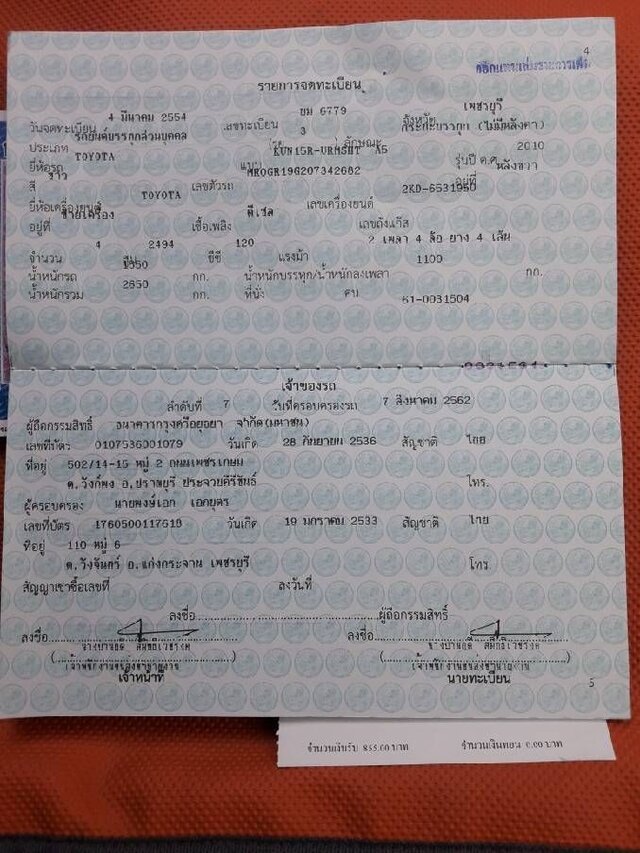 4
รายการจดทะเบียน
วันจดทะเบียน 4 มีนาคม 2554 เลขทะเบียน ขม 6779 จังหวัด เพชรบุรี
ประเภท รถยนต์บรรทุกส่วนบุคคล รย. 3 ลักษณะ กระบะบรรทุก (ไม่มีหลังคา)
ยี่ห้อรถ TOYOTA แบบ KUN15R-URMSHT A5 รุ่นปี ค.ศ. 2010
สี ขาว เลขตัวรถ MR0GR19G207342682 อยู่ที่ หลังขวา
ยี่ห้อเครื่องยนต์ TOYOTA เลขเครื่องยนต์ 2KD-6531950
อยู่ที่ ซ้ายเครื่อง เชื้อเพลิง ดีเซล เลขถังแก๊ส
จำนวน 4 สูบ 2494 ซีซี 120 แรงม้า 2 เพลา 4 ล้อ ยาง 4 เส้น
น้ำหนักรถ 1550 กก. น้ำหนักบรรทุก/น้ำหนักลงเพลา 1100 กก.
น้ำหนักรวม 2650 กก. ที่นั่ง คน 61-0031504
เจ้าของรถ
ลำดับที่ 7 วันที่ครอบครองรถ 7 สิงหาคม 2562
ผู้ถือกรรมสิทธิ์ ธนาคารกรุงศรีอยุธยา จำกัด(มหาชน)
เลขที่บัตร 0107536001079 วันเกิด 28 กันยายน 2536 สัญชาติ ไทย
ที่อยู่ 502/14-15 หมู่ 2 ถนนเพชรเกษม
ต.วังก์พง อ.ปราณบุรี ประจวบคีรีขันธ์ โทร.
ผู้ครอบครอง นายพงษ์เอก เอกบุตร
เลขที่บัตร 1760500117519 วันเกิด 19 มกราคม 2533 สัญชาติ ไทย
ที่อยู่ 110 หมู่ 6
ต.วังจันทร์ อ.แก่งกระจาน เพชรบุรี โทร.
สัญญาเช่าซื้อเลขที่ ลงวันที่
ลงชื่อ ผู้ถือกรรมสิทธิ์
ลงชื่อ ลงชื่อ
เจ้าหน้าที่ นายทะเบียน
5
จำนวนเงินรับ 855.00 บาท จำนวนเงินทอน 0.00 บาท